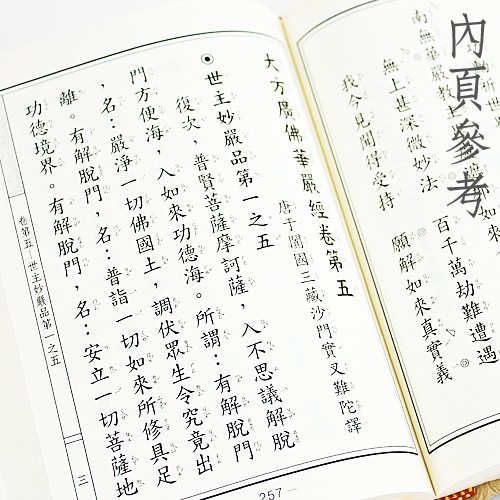 內頁參考
南無華嚴教主
無上甚深微妙法 百千萬劫難遭遇
我今見聞得受持 願解如來真實義
大方廣佛華嚴經卷第五
唐于闐國三藏沙門實叉難陀譯
世主妙嚴品第一之五
復次，普賢菩薩摩訶薩，入不思議解脫
門方便海，入如來功德海。所謂：有解脫門
，名：嚴淨一切佛國土，調伏眾生令究竟出
離。有解脫門，名：普詣一切如來所修具足
功德境界。有解脫門，名：安立一切菩薩地
卷第五 世主妙嚴品第一之五
三
257